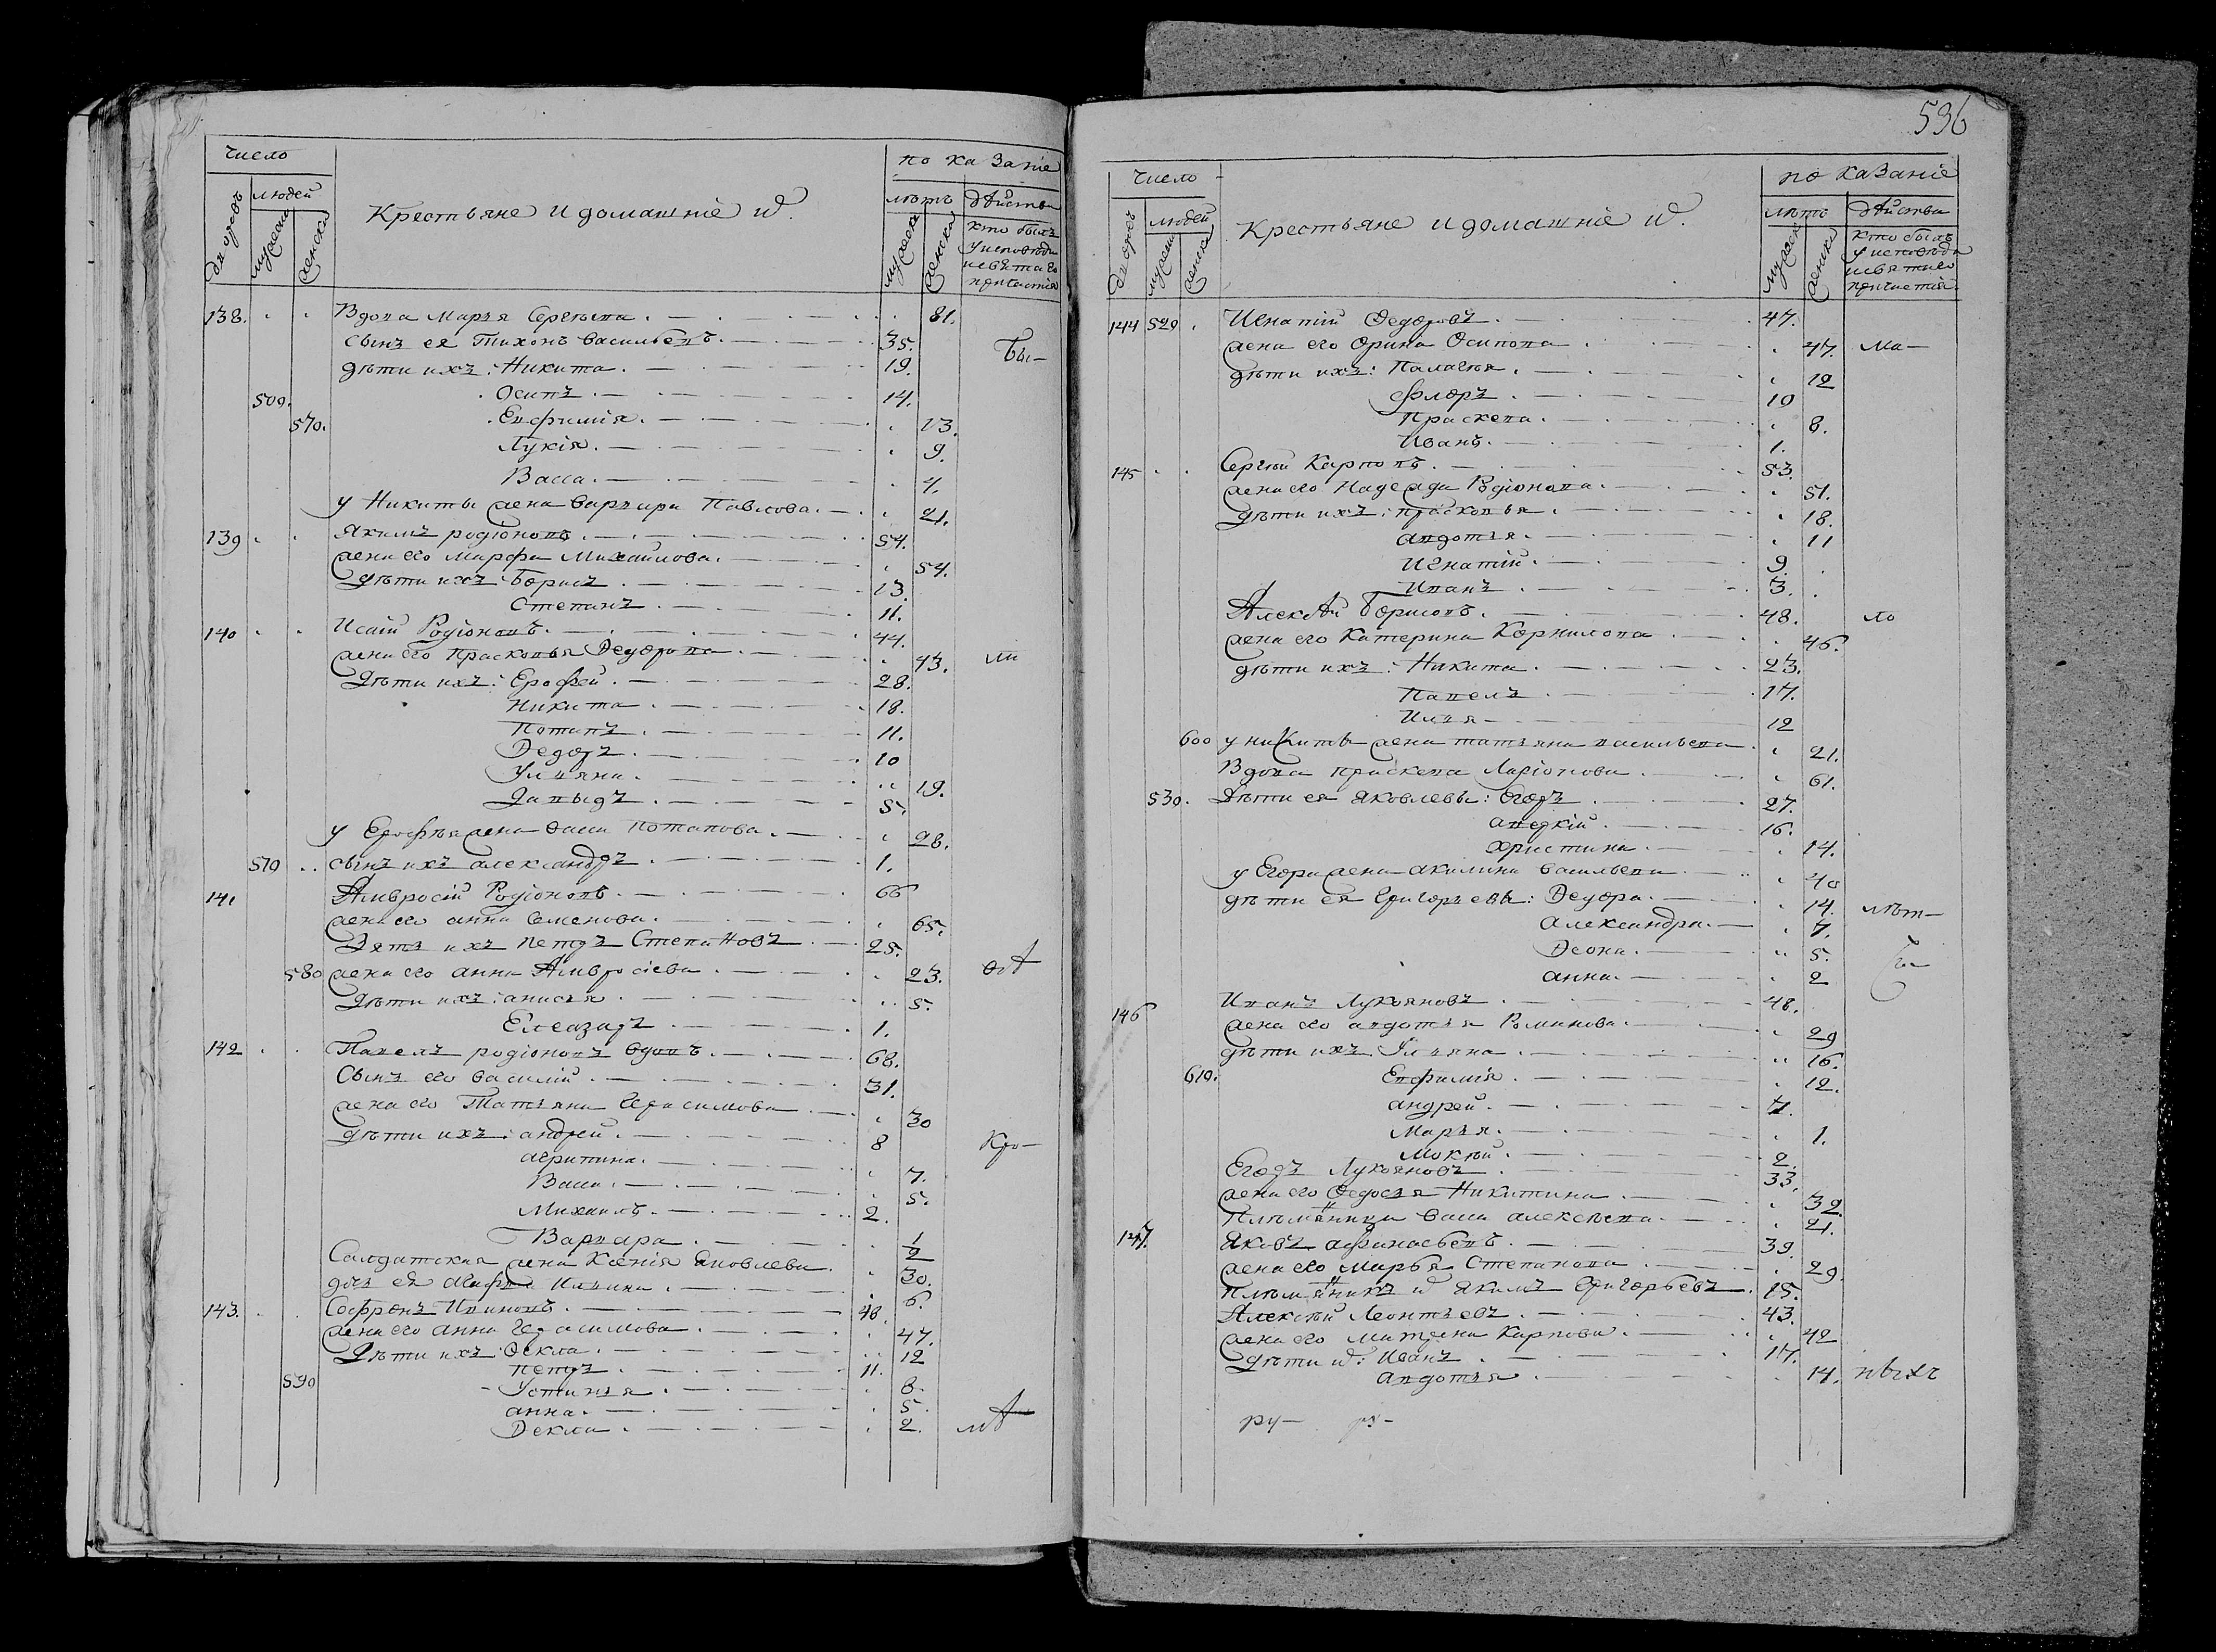 число
по казаніе
дворовъ
людей
мужеска
женска
Крестьяне и домашніе ихъ
лѣтъ
дѣйства
мужеска
женска
кто былъ
у исповѣди
и святаго
причастія
138. Вдова Марья Сергѣева. 81.
сынъ ея Тихонъ Васильевъ. 35. Бы-
дѣти ихъ: Никита. 19.
509. Осипъ. 14.
570. Евфимія. 13.
Лукія. 9.
Васса. 4.
у Никиты жена Варвара Павлова. 21.
139 Якимъ Родіоновъ. 54.
жена его Марфа Михаилова. 54.
Дѣти ихъ: Борисъ. 13.
Степанъ. 11.
140 Исаій Родіоновъ. 44.
жена его Прасковья Ѳедорова 43. ли
Дѣти ихъ: Ерофей. 28.
Никита. 18.
Потапъ. 11.
Ѳедоръ. 10
Ульяна. 19.
Давыдъ. 5.
у Ерофѣя жена Васса Потапова. 28.
519 сынъ ихъ Александръ. 1.
141 Амвросій Родіоновъ. 66
жена его Анна Семенова. 65.
Зять ихъ Петръ Степановъ. 25.
580 жена его Анна Амвросіева. 23.
Дѣти ихъ: Анисья. 5.
Елеазаръ. 1.
142 Павелъ Родіоновъ вдовъ. 68.
Сынъ его Василій. 31.
жена его Татьяна Герасимова 30
Дѣти ихъ: Андрей. 8 Кро-
Агрипина. 7.
Васса. 5.
Михаилъ. 2.
Варвара. 1/2
Салдатская жена Ксенія Яковлева. 30.
дочь ея Агафья Ильина. 6.
143. Софронъ Ивановъ. 48.
жена его Анна Герасимова. 47.
Дѣти ихъ: Ѳекла. 12
Петръ. 11.
590 Устинья. 8.
Анна. 5.
Ѳекла. 2.
596
число
по казаніе
дворовъ
людей
мужеска
женска
Крестьяне и домашніе ихъ.
лѣтъ
дѣйства
мужеска
женска
кто былъ
у исповѣди
и святаго
причастія
144 529 Игнатій Ѳедоровъ. 47.
жена его Орина Осипова. 47. ма-
дѣти ихъ: Палагея. 12
Флоръ. 10
Праскева. 8.
Иванъ. 1.
145 Сергѣй Карповъ. 53.
жена его Надежда Родіонова. 51.
Дѣти ихъ: Прасковья. 18.
Авдотья. 11
Игнатій. 9.
Иванъ. 3.
Алексѣй Борисовъ. 48. ло
жена его Катерина Корнилова 46.
дѣти ихъ: Никита. 23.
Павелъ. 17.
Илья 12
600 у Никиты жена Татьяна Васильева. 21.
Вдова Праскева Ларіонова. 61.
530. Дѣти ея Яковлевы: Егоръ 27.
Авдкій. 16.
Христина. 14.
у Егора жена Акилина Васильева. 40
дѣти ея Григорьевы: Ѳедора. 14. лѣт-
Александра. 7.
Ѳеона. 5.
Анна. 2
146 Иванъ Лукояновъ. 48.
жена его Авдотья Романова. 29
дѣти ихъ: Ульяна. 16.
610. Евфимія. 12.
Андрей. 4.
Марья. 1.
Мокѣй. 2.
Егоръ Лукояновъ. 33.
жена его Ѳедосья Никитина. 32.
Племянница Васса Алексѣева. 21.
147. Яковъ Афанасьевъ. 39.
жена его Марья Степанова 29.
Племянникъ ихъ Якимъ Григорьевъ. 15.
Алексѣй Леонтьевъ. 43.
жена его Матрена Карпова. 42
дѣти ихъ: Иванъ. 17.
Авдотья. 14. ныхъ
ру- ру-